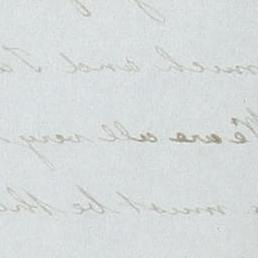 much and I a
We are all very
must be the